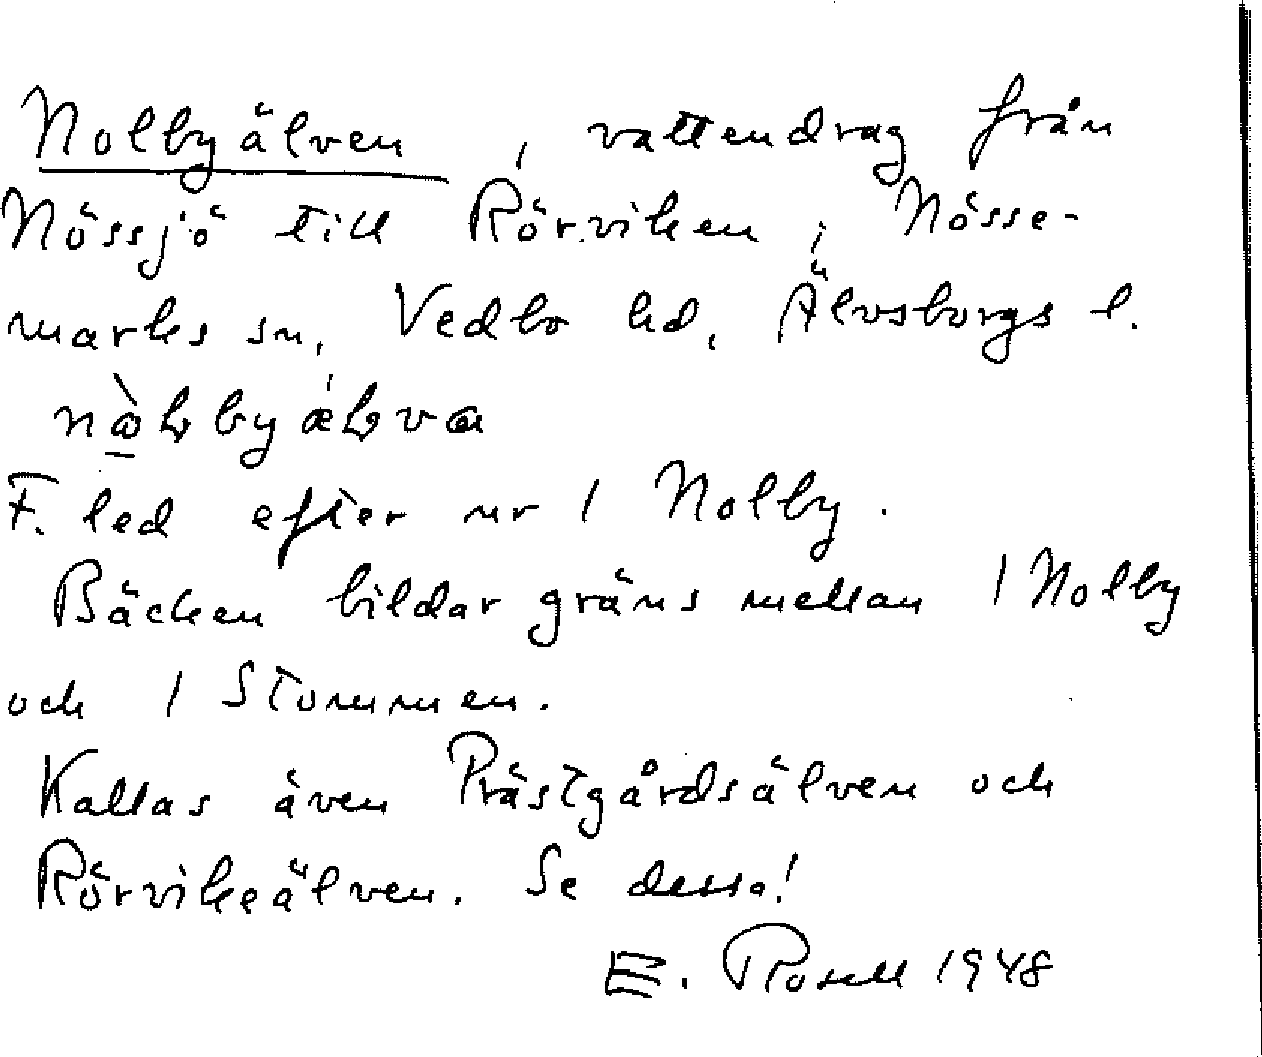 Nolbyälven, vattendrag från
Nössjö till Rörviken i Nösse-
marks sn, Vedbo hd, Älvsborgs l.
F. led efter nr 1 Nolby.
Bäcken bildar gräns mellan 1 Nolby
och 1 Stommen.
Kallas även Prästgårdsälven och
Rörvikeälven. Se dessa!
E. Rosell 1948